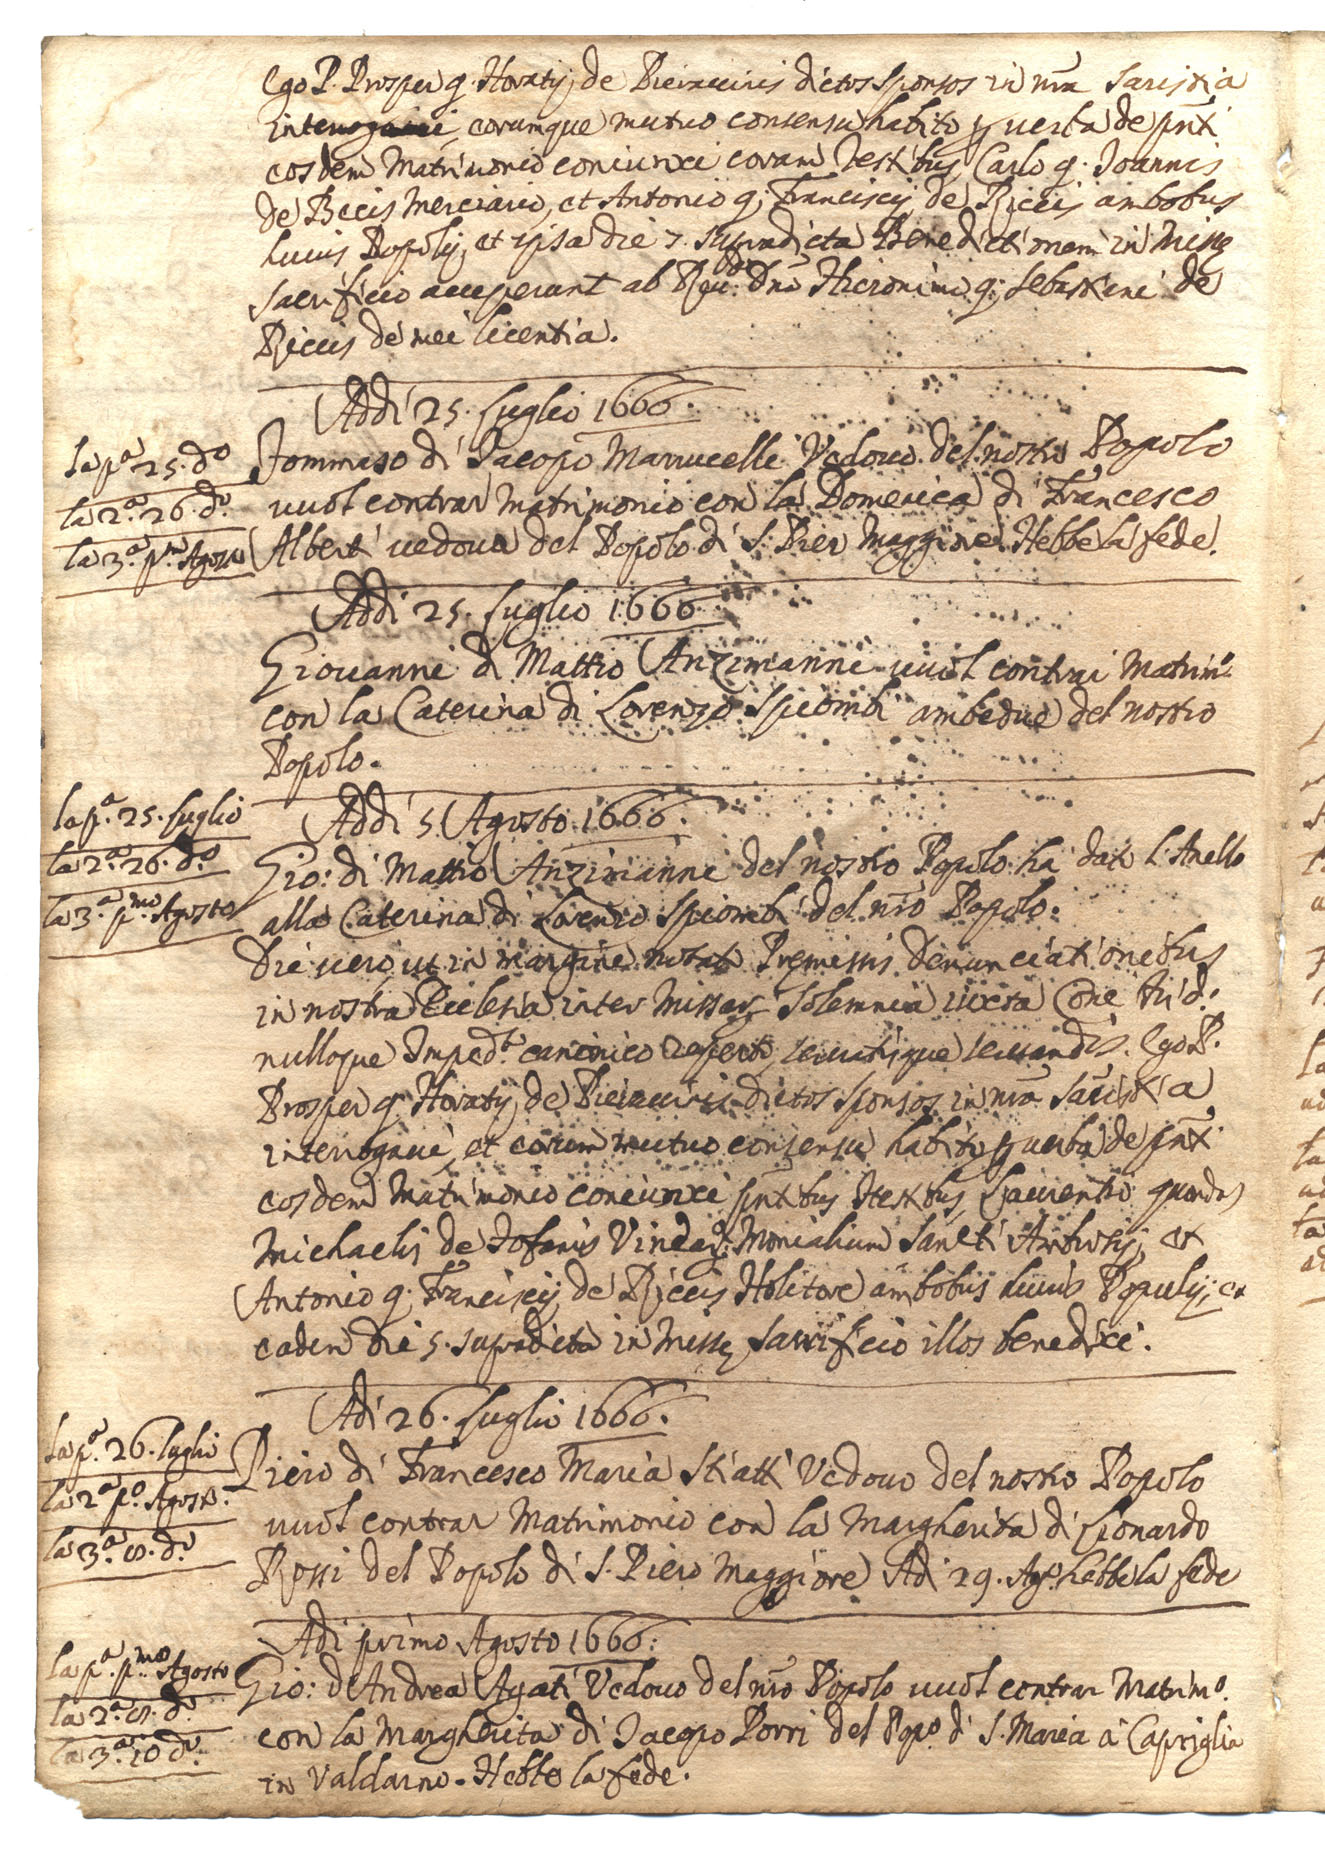 Ego P. Prosper q. Horatij de Pieraccinis dictos sponsos in nrã Sacristia
interrogavi, eorumque mutuo consensu habito p verba de pñti
eosdem Matrimonio coniunxi coram Testibus, Carlo q. Joannis
de Merciario, et Antonio q. Francisci de Riccis ambobus
huius Popoli, et ipsa die 7. supradicta Benedictionem in Misse
sacrificio acceperunt ab Reu.do Dno Hieronimo q. Sebastiani de
Riccis de mei licentia.
Addi 25. Luglio 1666.
la pa 25. do
la 2.a 26. do
la 3.a pmo Agosto
Tommaso di Jacopo Marrucelli Vedovo del nostro Popolo
vuol contrar Matrimonio con la Domenica di Francesco
Alberti vedova del Popolo di S. Pier Maggiore. Hebbe la fede.
Addi 25. Luglio 1666
Giovanni di Mattio Anzimanni vuol contrar Matrimo
con la Caterina di Lorenzo Spiombi ambedue del nostro
Popolo.
la p.a 25. Luglio
la 2.a 26. do
la 3.a pmo Agosto
Addi 5 Agosto 1666.
Gio: di Mattio Anzimanni del nostro Popolo ha dato l'Anello
alla Caterina di Lorenzo Spiombi del nro Popolo:
Die vero, ut in margine notat Premissis denunciationibus
in nostra Ecclesia inter Missar Solemnia iuxta Conc Trid.
nulloque Imped.to canonico reperto, servatisque servandis. Ego P.
Prosper q. Horatij de Pieraccinis dictos sponsos in nrã Sacristia
interrogavi, et eorum mutuo consensu habito p verba de pñti
eosdem Matrimonio coniunxi pñtibus Testibus, Laurentio quondam
Michaelis de Tofanis Monialium Sancti Ambrosij, et
Antonio q. Francisci de Riccis Holitore ambobus huius Populi; et
eadem die 5. supradicta in Misse Sacrificio illos benedixi.
Adi 26. Luglio 1666.
la p.a 26. luglio
la 2.a p.o Agosto
la 3.a 8. do
Piero di Francesco Maria Stiatti Vedovo del nostro Popolo
vuol contrar Matrimonio con la Margherita di Lionardo
Rossi del Popolo di S. Piero Maggiore Adi 29. Ago. hebbe la fede
Adi primo Agosto 1666:
la p.a pmo Agosto
la 2.a 8. do
la 3.a 10 do
Gio: d'Andrea Agati Vedovo del nro Popolo vuol contrar Matrimo.
con la Margherita di Jacopo Porri del Popo. di S. Maria à Capriglia
in Valdarno. Hebbe la fede.